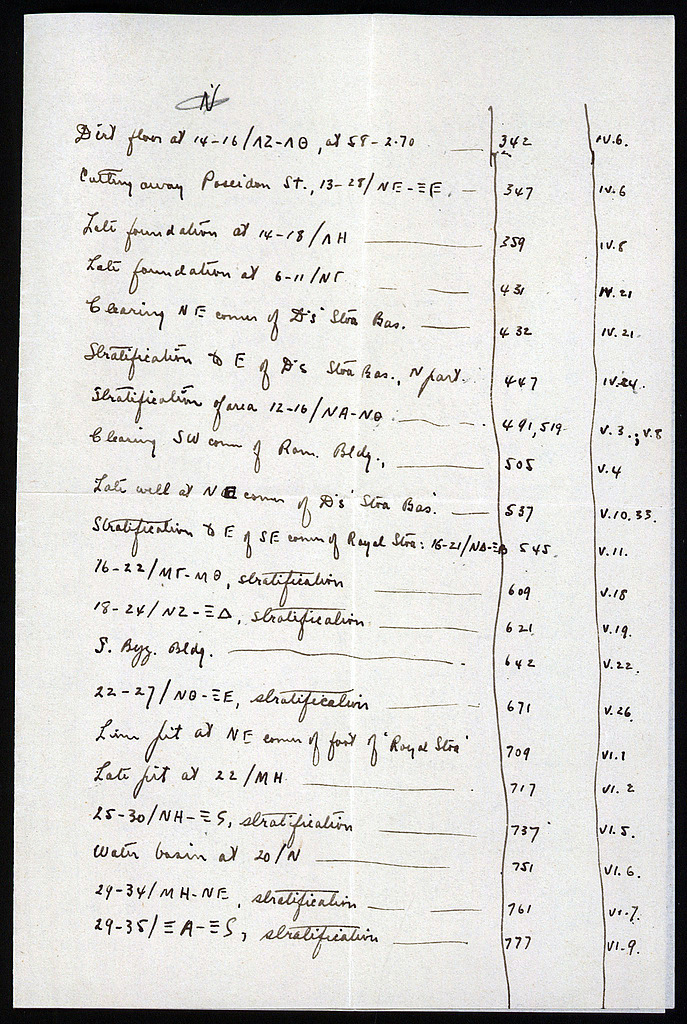 N
Dirt floor at 14-16/ΛΖ-ΛΘ, at 59-2.70 — 342 IV.6.
Cutting away Poseidon St., 13-28/ΝΕ-ΞΕ. — 347 IV.6
Late foundation at 14-18/ΛΗ — 359 IV.8
Late foundation at 6-11/ΝΓ — — 431 IV.21
Clearing NE corner of D's' Stoa Bas. — 432 IV.21.
Stratification to E of D's Stoa Bas., N part. 447 IV.24.
Stratification of area 12-16/ΝΑ-ΝΘ. — 491,519 V.3.; V.8
Clearing SW corner of Rom. Bldg., — 505 V.4
Late well at NE corner of D's' Stoa Bas. — 537 V.10.33.
Stratification to E of SE corner of Royal Stoa: 16-21/ΝΔ-ΞΒ 545. V.11.
16-22/ΜΓ-ΜΘ, stratification — 609 V.18
18-24/ΝΖ-ΞΔ, stratification — 621 V.19.
S. Byz. Bldg. — 642 V.22.
22-27/ΝΘ-ΞΕ, stratification — 671 V.26
Lime pit at NE corner of foot of 'Royal Stoa' 709 VI.1
Late pit at 22/ΜΗ — 717 VI.2
25-30/ΝΗ-ΞS, stratification — 737 VI.5.
Water basin at 20/Ν — 751 VI.6.
29-34/ΜΗ-ΝΕ, stratification — 761 VI.7.
29-35/ΞΑ-ΞS, stratification — 777 VI.9.